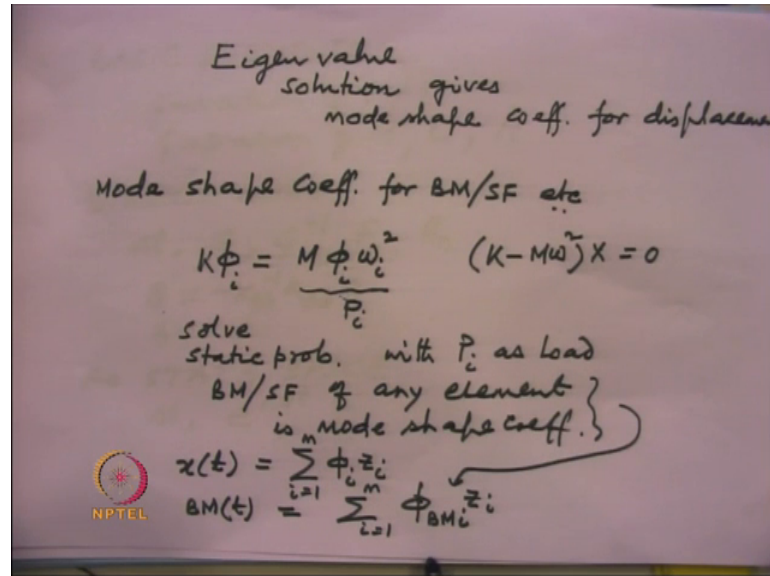 Eigen value
solution gives
mode shape coeff. for displacemen
Mode shape coeff. for BM/SF etc
Kϕᵢ = Mϕᵢωᵢ² (K-Mω²)X = 0
Pᵢ
solve
static prob. with Pᵢ as Load
BM/SF of any element
is mode shape coeff.
x(t) = ∑ᵢ₌₁ᵐ ϕᵢzᵢ
BM(t) = ∑ᵢ₌₁ᵐ ϕ_BMᵢ zᵢ
NPTEL